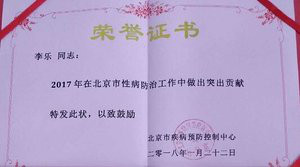 荣誉证书
李乐 同志：
2017年在北京市性病防治工作中做出突出贡献
特发此状，以致鼓励
北京市疾病预防控制中心
二〇一八年一月二十二日